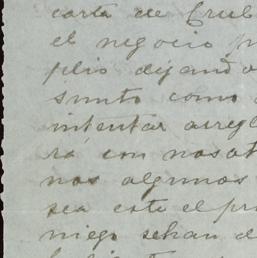 carta de Crub
el negocio p
plio dejando
sunto como
intentar arregl
rá con nosot
nos algunos
sea este el pri
niego sehan d